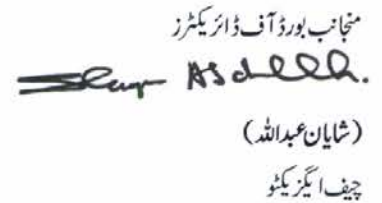 منجانب بورڈ آف ڈائریکٹرز
(شایان عبداللہ)
چیف ایگزیکٹو